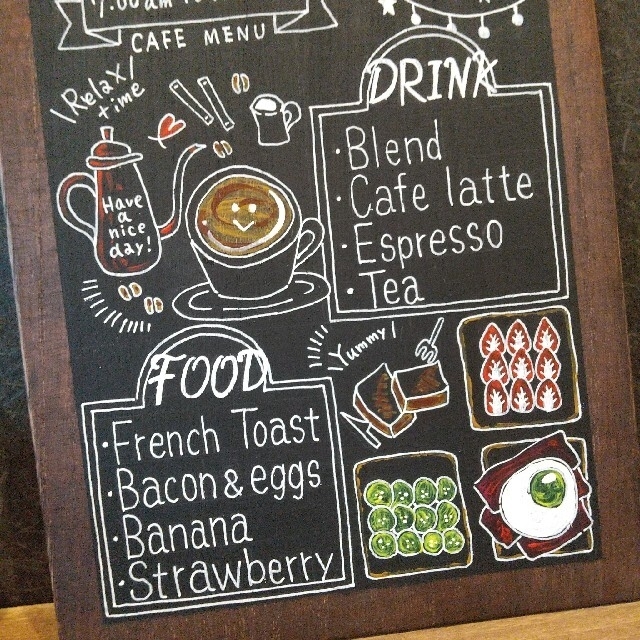 7:00am
CAFE MENU
\Relax/
time
Have
a
nice
day!
DRINK
·Blend
·Cafe latte
·Espresso
·Tea
Yummy!
FOOD
·French Toast
·Bacon & eggs
·Banana
·Strawberry